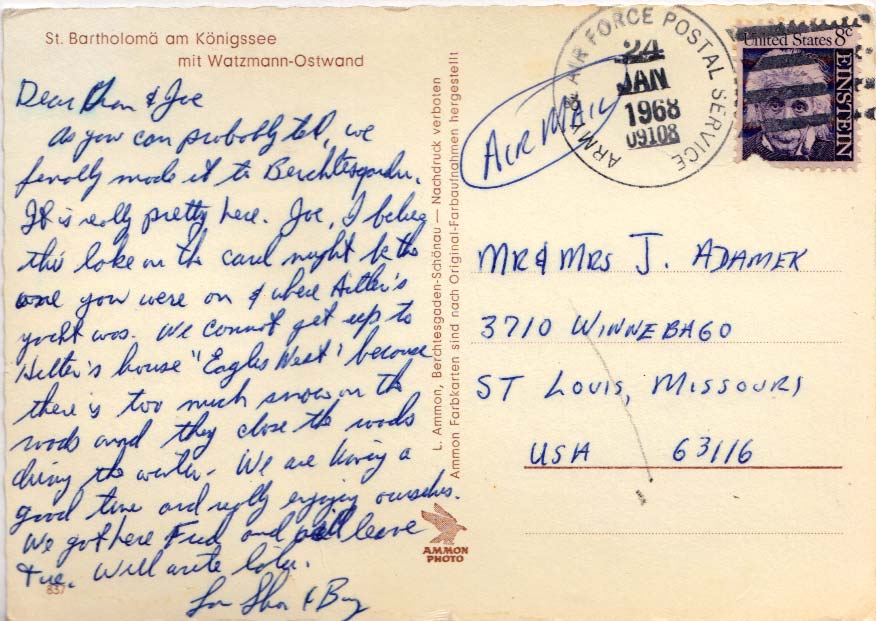 St. Bartholomä am Königssee
mit Watzmann-Ostwand
Dear & Joe
As you can probably tell, we
finally made it to Berchtesgaden.
It is really pretty here. Joe, I believe
this lake on the card might be the
one you were on & where Hitler's
yacht was. We cannot get up to
Hitler's house "Eagles Nest" because
there is too much snow on the
roads and they close the roads
during the winter. We are having a
good time and really enjoying ourselves.
We got here Fri and will leave
Tue. Will write later.
&
837
L. Ammon, Berchtesgaden-Schönau — Nachdruck verboten
Ammon Farbkarten sind nach Original-Farbaufnahmen hergestellt
AMMON
PHOTO
AIR MAIL
ARMY & AIR FORCE POSTAL SERVICE
24
JAN
1968
09108
United States 8c
EINSTEIN
MR & MRS J. ADAMEK
3710 WINNEBAGO
ST LOUIS, MISSOURI
USA 63116